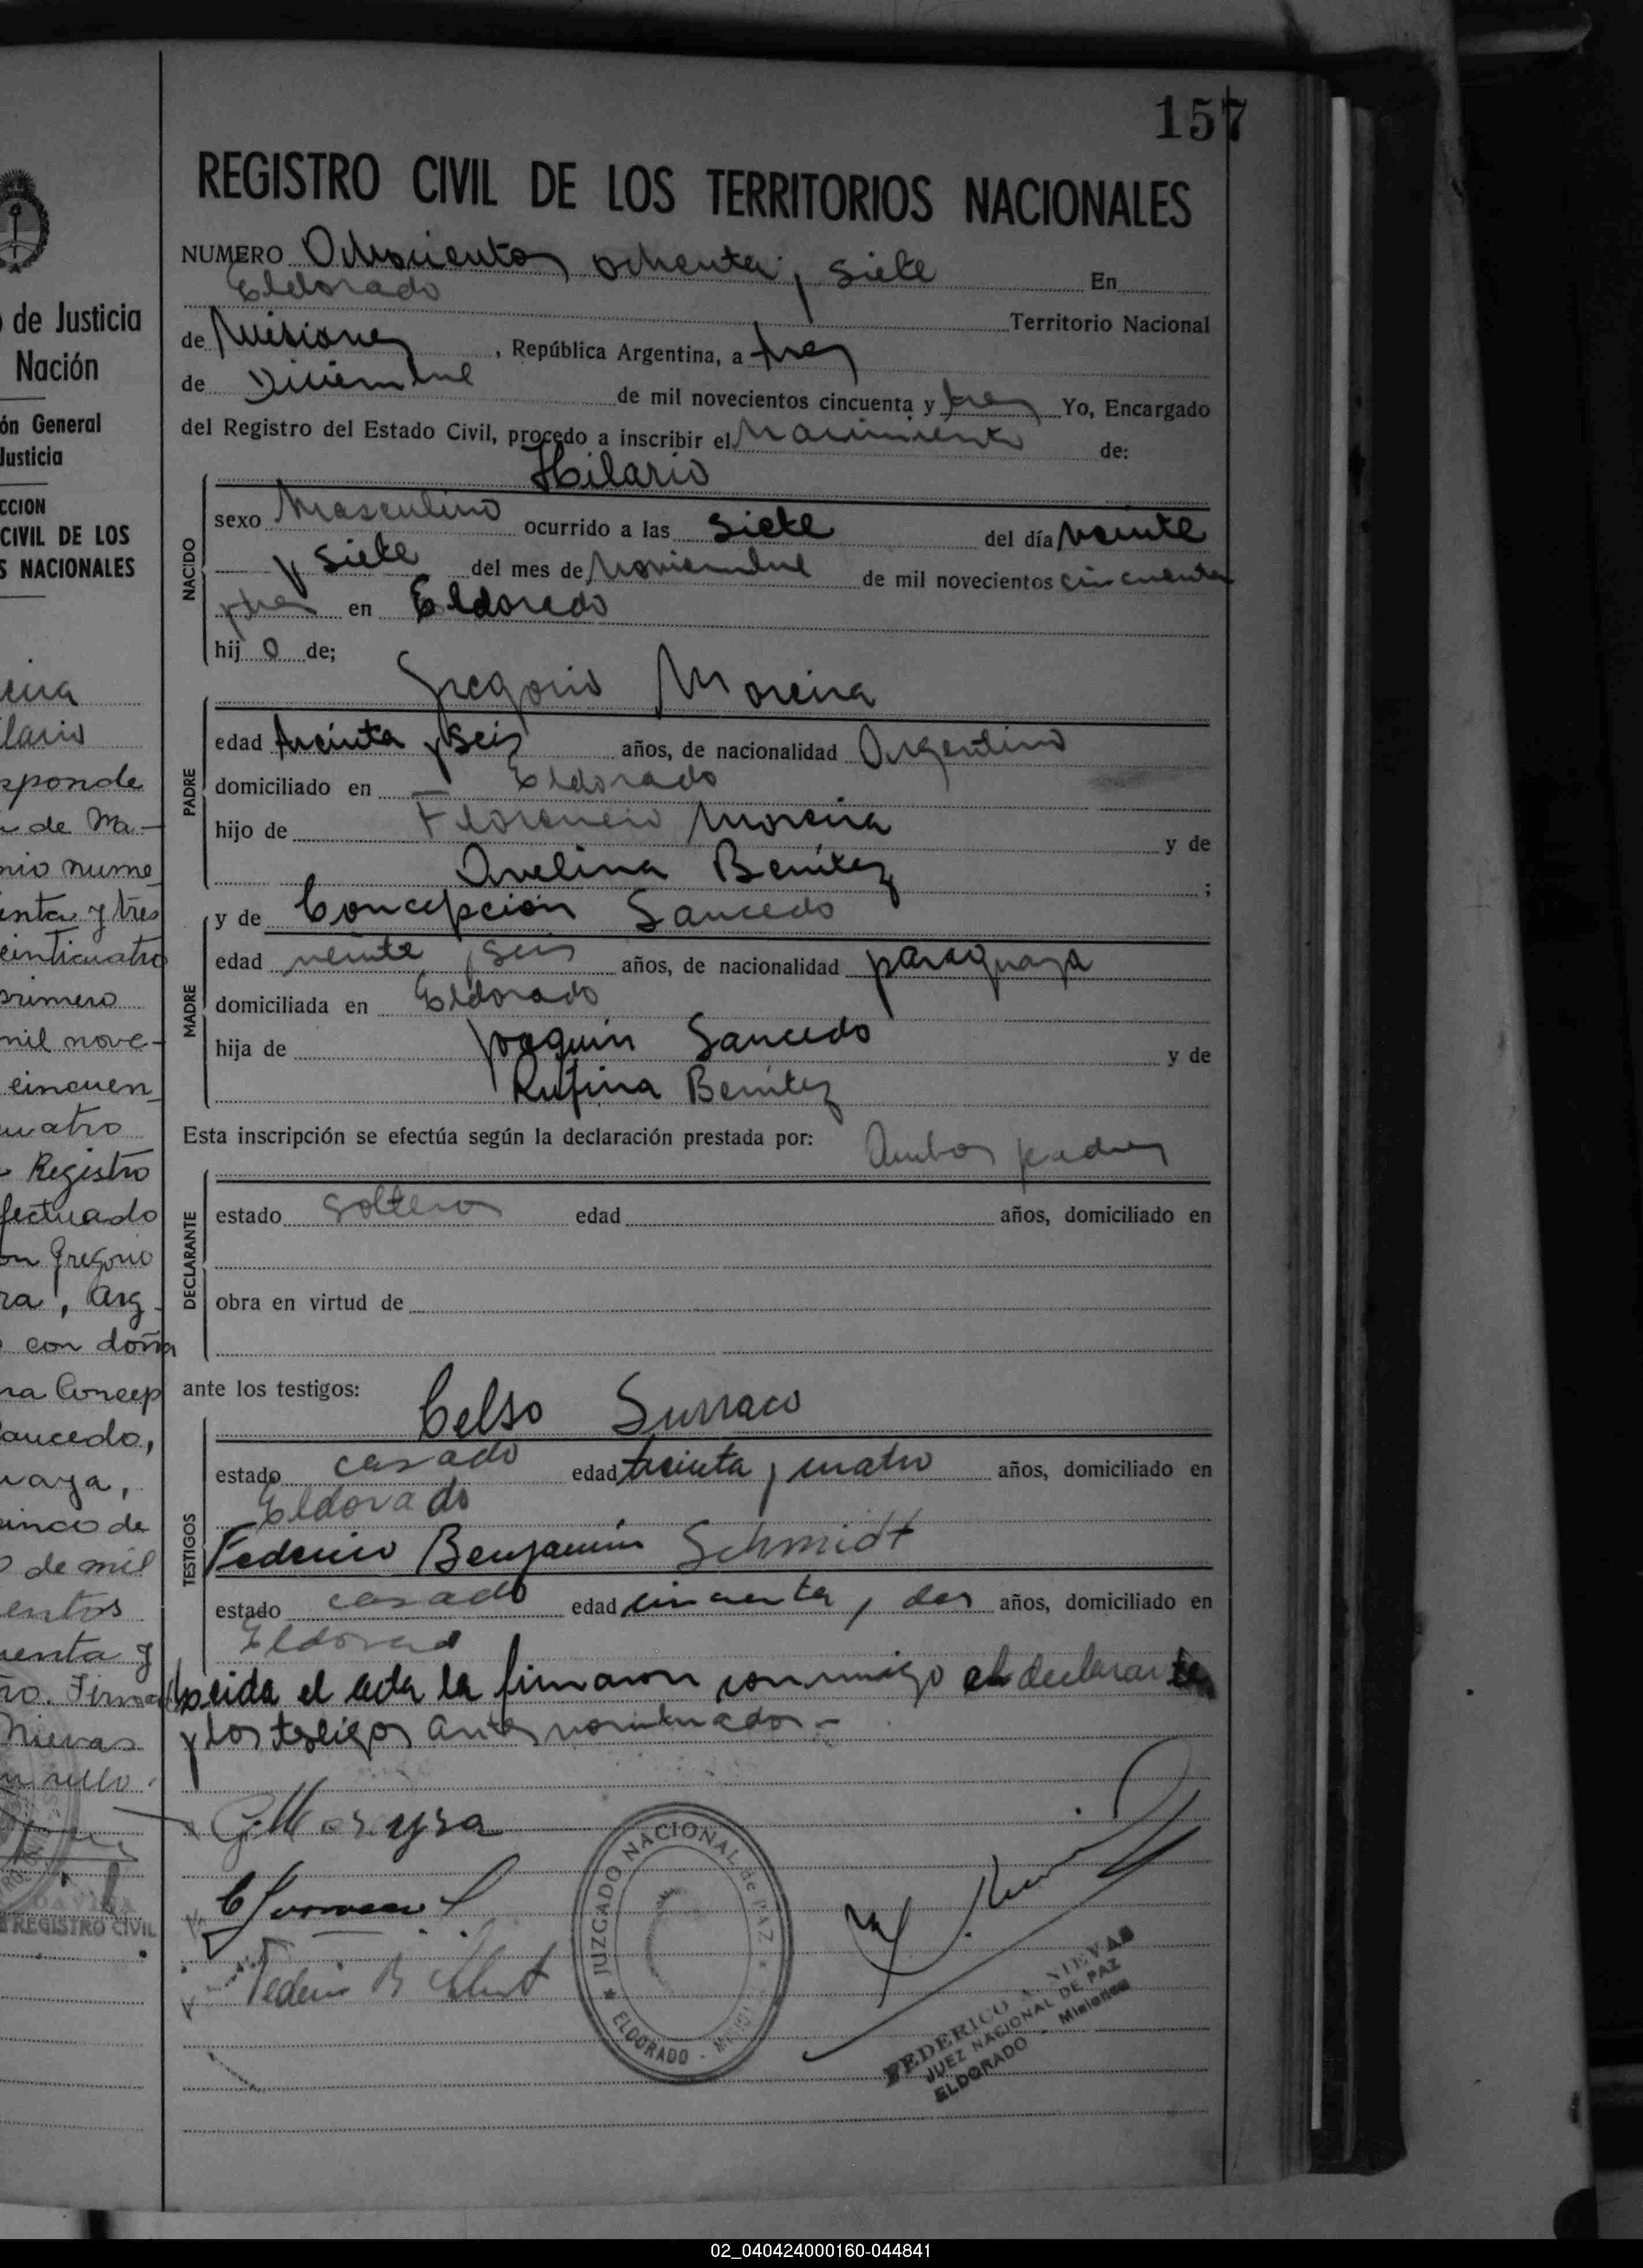 157
REGISTRO CIVIL DE LOS TERRITORIOS NACIONALES
NUMERO Ochocientos ochenta y siete En
Eldorado
Territorio Nacional
de Misiones, República Argentina, a tres
de Diciembre de mil novecientos cincuenta y tres Yo, Encargado
del Registro del Estado Civil, procedo a inscribir el Nacimiento de:
Hilario
NACIDO
sexo Masculino ocurrido a las siete del día veinte
y siete del mes de Noviembre de mil novecientos cincuenta
y tres en Eldorado
hijo de;
Gregorio Moreira
PADRE
edad treinta y seis años, de nacionalidad Argentino
domiciliado en Eldorado
hijo de Florencio Moreira y de
Avelina Benítez ;
MADRE
y de Concepción Saucedo
edad veinte y seis años, de nacionalidad paraguaya
domiciliada en Eldorado
hija de Joaquín Saucedo y de
Rufina Benítez
Esta inscripción se efectúa según la declaración prestada por: Ambos padres
DECLARANTE
estado solteros edad años, domiciliado en
obra en virtud de
ante los testigos:
Celso Surraco
TESTIGOS
estado casado edad treinta y cuatro años, domiciliado en
Eldorado
Federico Benjamín Schmidt
estado casado edad cincuenta y dos años, domiciliado en
Eldorado
Leida el acta la firmaron conmigo el declarante
y los testigos antes nominados.-
G. Moreyra
JUZGADO NACIONAL de PAZ
ELDORADO -
FEDERICO A. NIEVAS
JUEZ NACIONAL DE PAZ
ELDORADO - Misiones
de Justicia
Nación
ón General
Justicia
CCION
CIVIL DE LOS
S NACIONALES
eira
lario
sponde
de Ma-
nio nume
enta y tres
einticuatro
primero
mil nove-
cincuen
uatro
Registro
fectuado
on Gregorio
ra, Arg
con doña
na Concep
aucedo,
uaya,
inco de
de mil
entos
uenta y
ro. Firma
Nievas
sello.
REGISTRO CIVIL
02_040424000160-044841